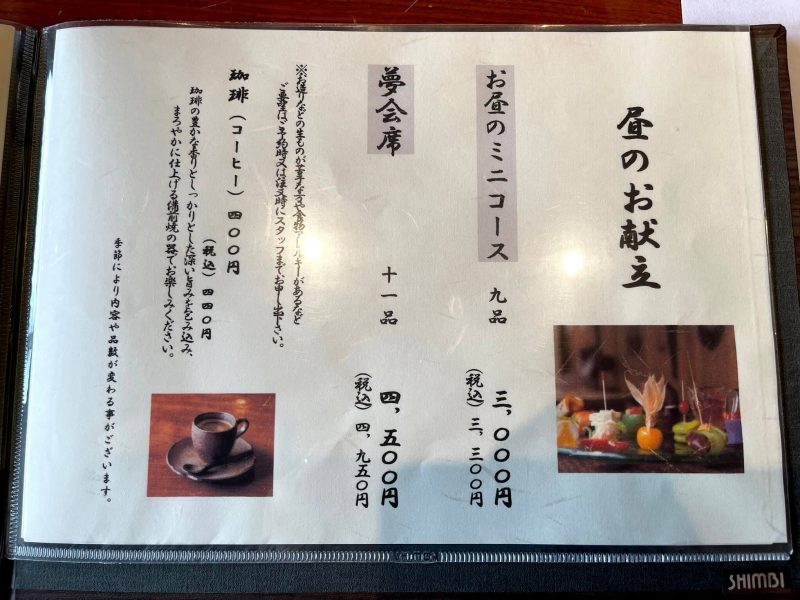 昼のお献立
お昼のミニコース 九品 三、〇〇〇円
(税込) 三、三〇〇円
夢会席 十一品 四、五〇〇円
(税込) 四、九五〇円
※お造りなどの生ものが苦手な方や食物アレルギーがあるなど
ご要望はご予約時又は注文時にスタッフまでお申し出下さい。
珈琲(コーヒー) 四〇〇円
(税込) 四四〇円
珈琲の豊かな香りとしっかりとした深い旨みを包み込み、
まろやかに仕上げる備前焼の器でお楽しみください。
季節により内容や品数が変わる事がございます。
SHIMBI